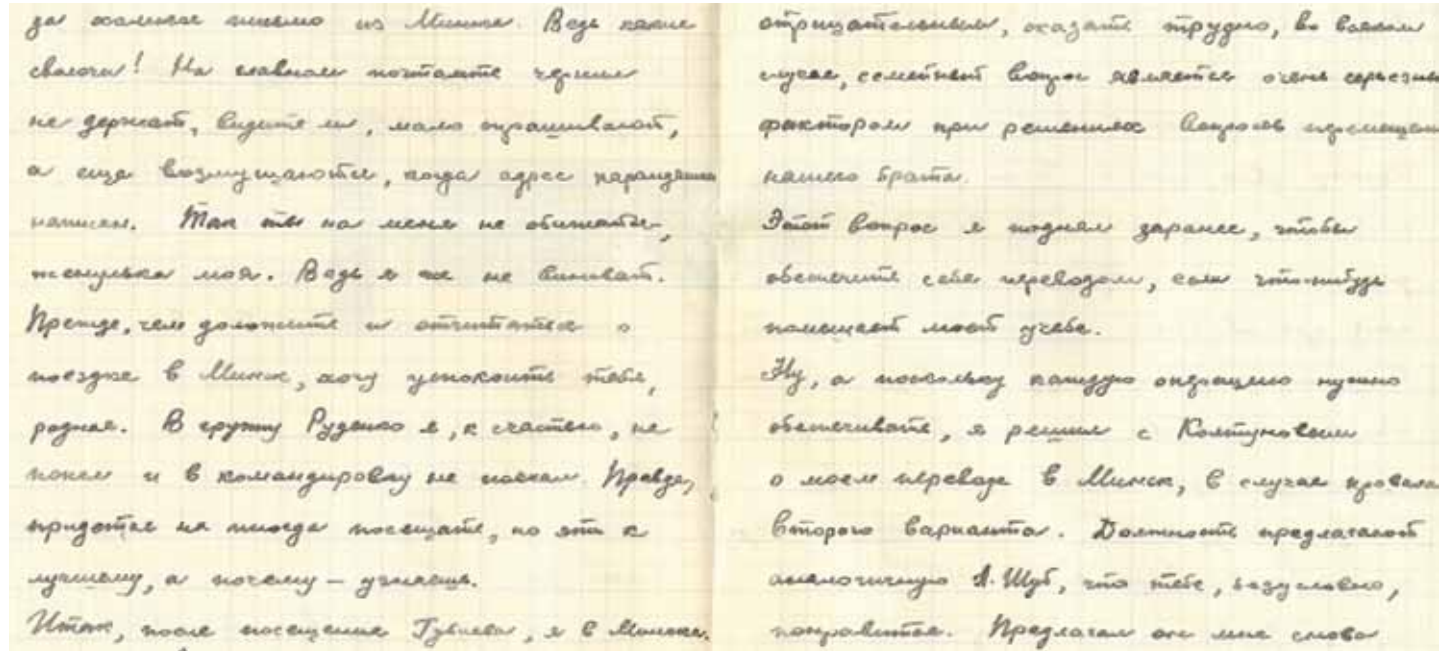 за жалкое письмо из Минска. Ведь какие
сволочи! На главном почтамте чернил
не держат, видите ли, мало спрашивают,
а еще возмущаются, когда адрес карандашом
написан. Так ты на меня не обижайся,
женулька моя. Ведь я же не виноват.
Прежде, чем доложить и отчитаться о
поездке в Минск, хочу успокоить тебя,
родная. В группу Руденко я, к счастью, не
попал и в командировку не поехал. Правда,
придется их иногда посещать, но это к
лучшему, а почему – узнаешь.
Итак, после посещения я в Минске.
отрицательным, сказать трудно, во всяком
случае, семейный вопрос является очень серьезным
фактором при решениях вопросов перемещения
нашего брата.
Этот вопрос я поднял заранее, чтобы
обеспечить себя переводом, если что-нибудь
помешает моей учебе.
Ну, а поскольку каждую операцию нужно
обеспечивать, я решил с Колтуновым
о моем переводе в Минск, в случае провала
второго варианта. Должность предлагают
аналогичную А. Шуб, что тебе, безусловно,
понравится. Предлагал он мне снова